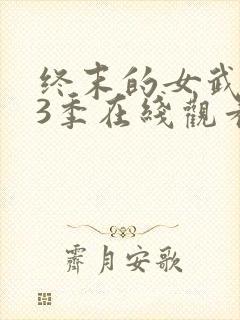 终末的女武
3季在綫觀看
霽月安歌